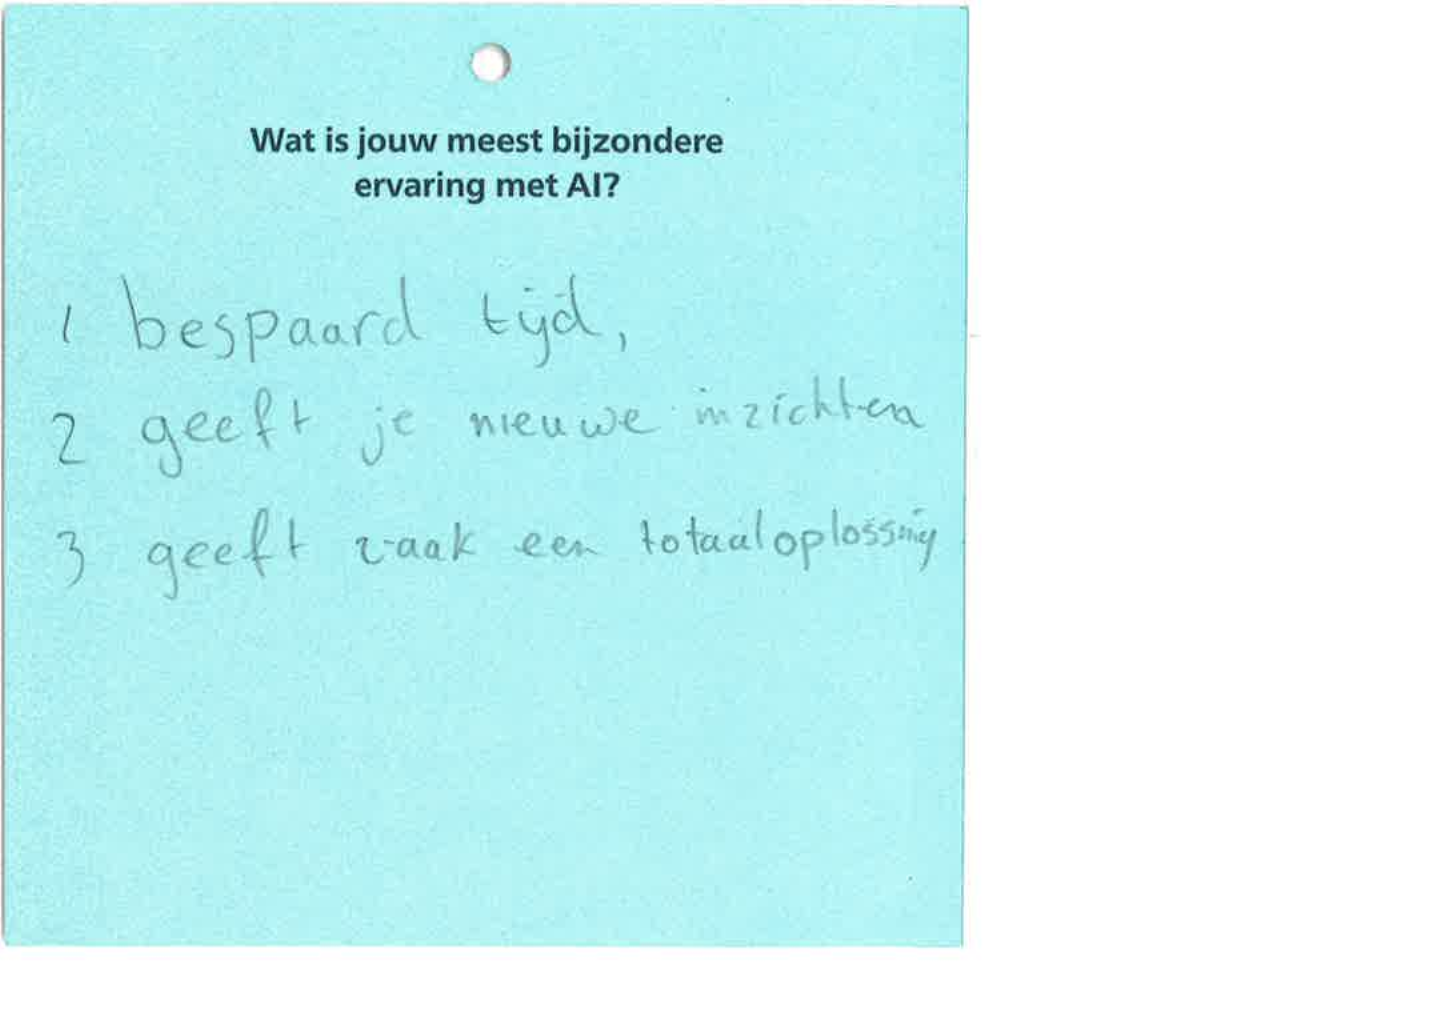 Wat is jouw meest bijzondere
ervaring met AI?
1 bespaard tijd,
2 geeft je nieuwe inzichten
3 geeft vaak een totaaloplossing